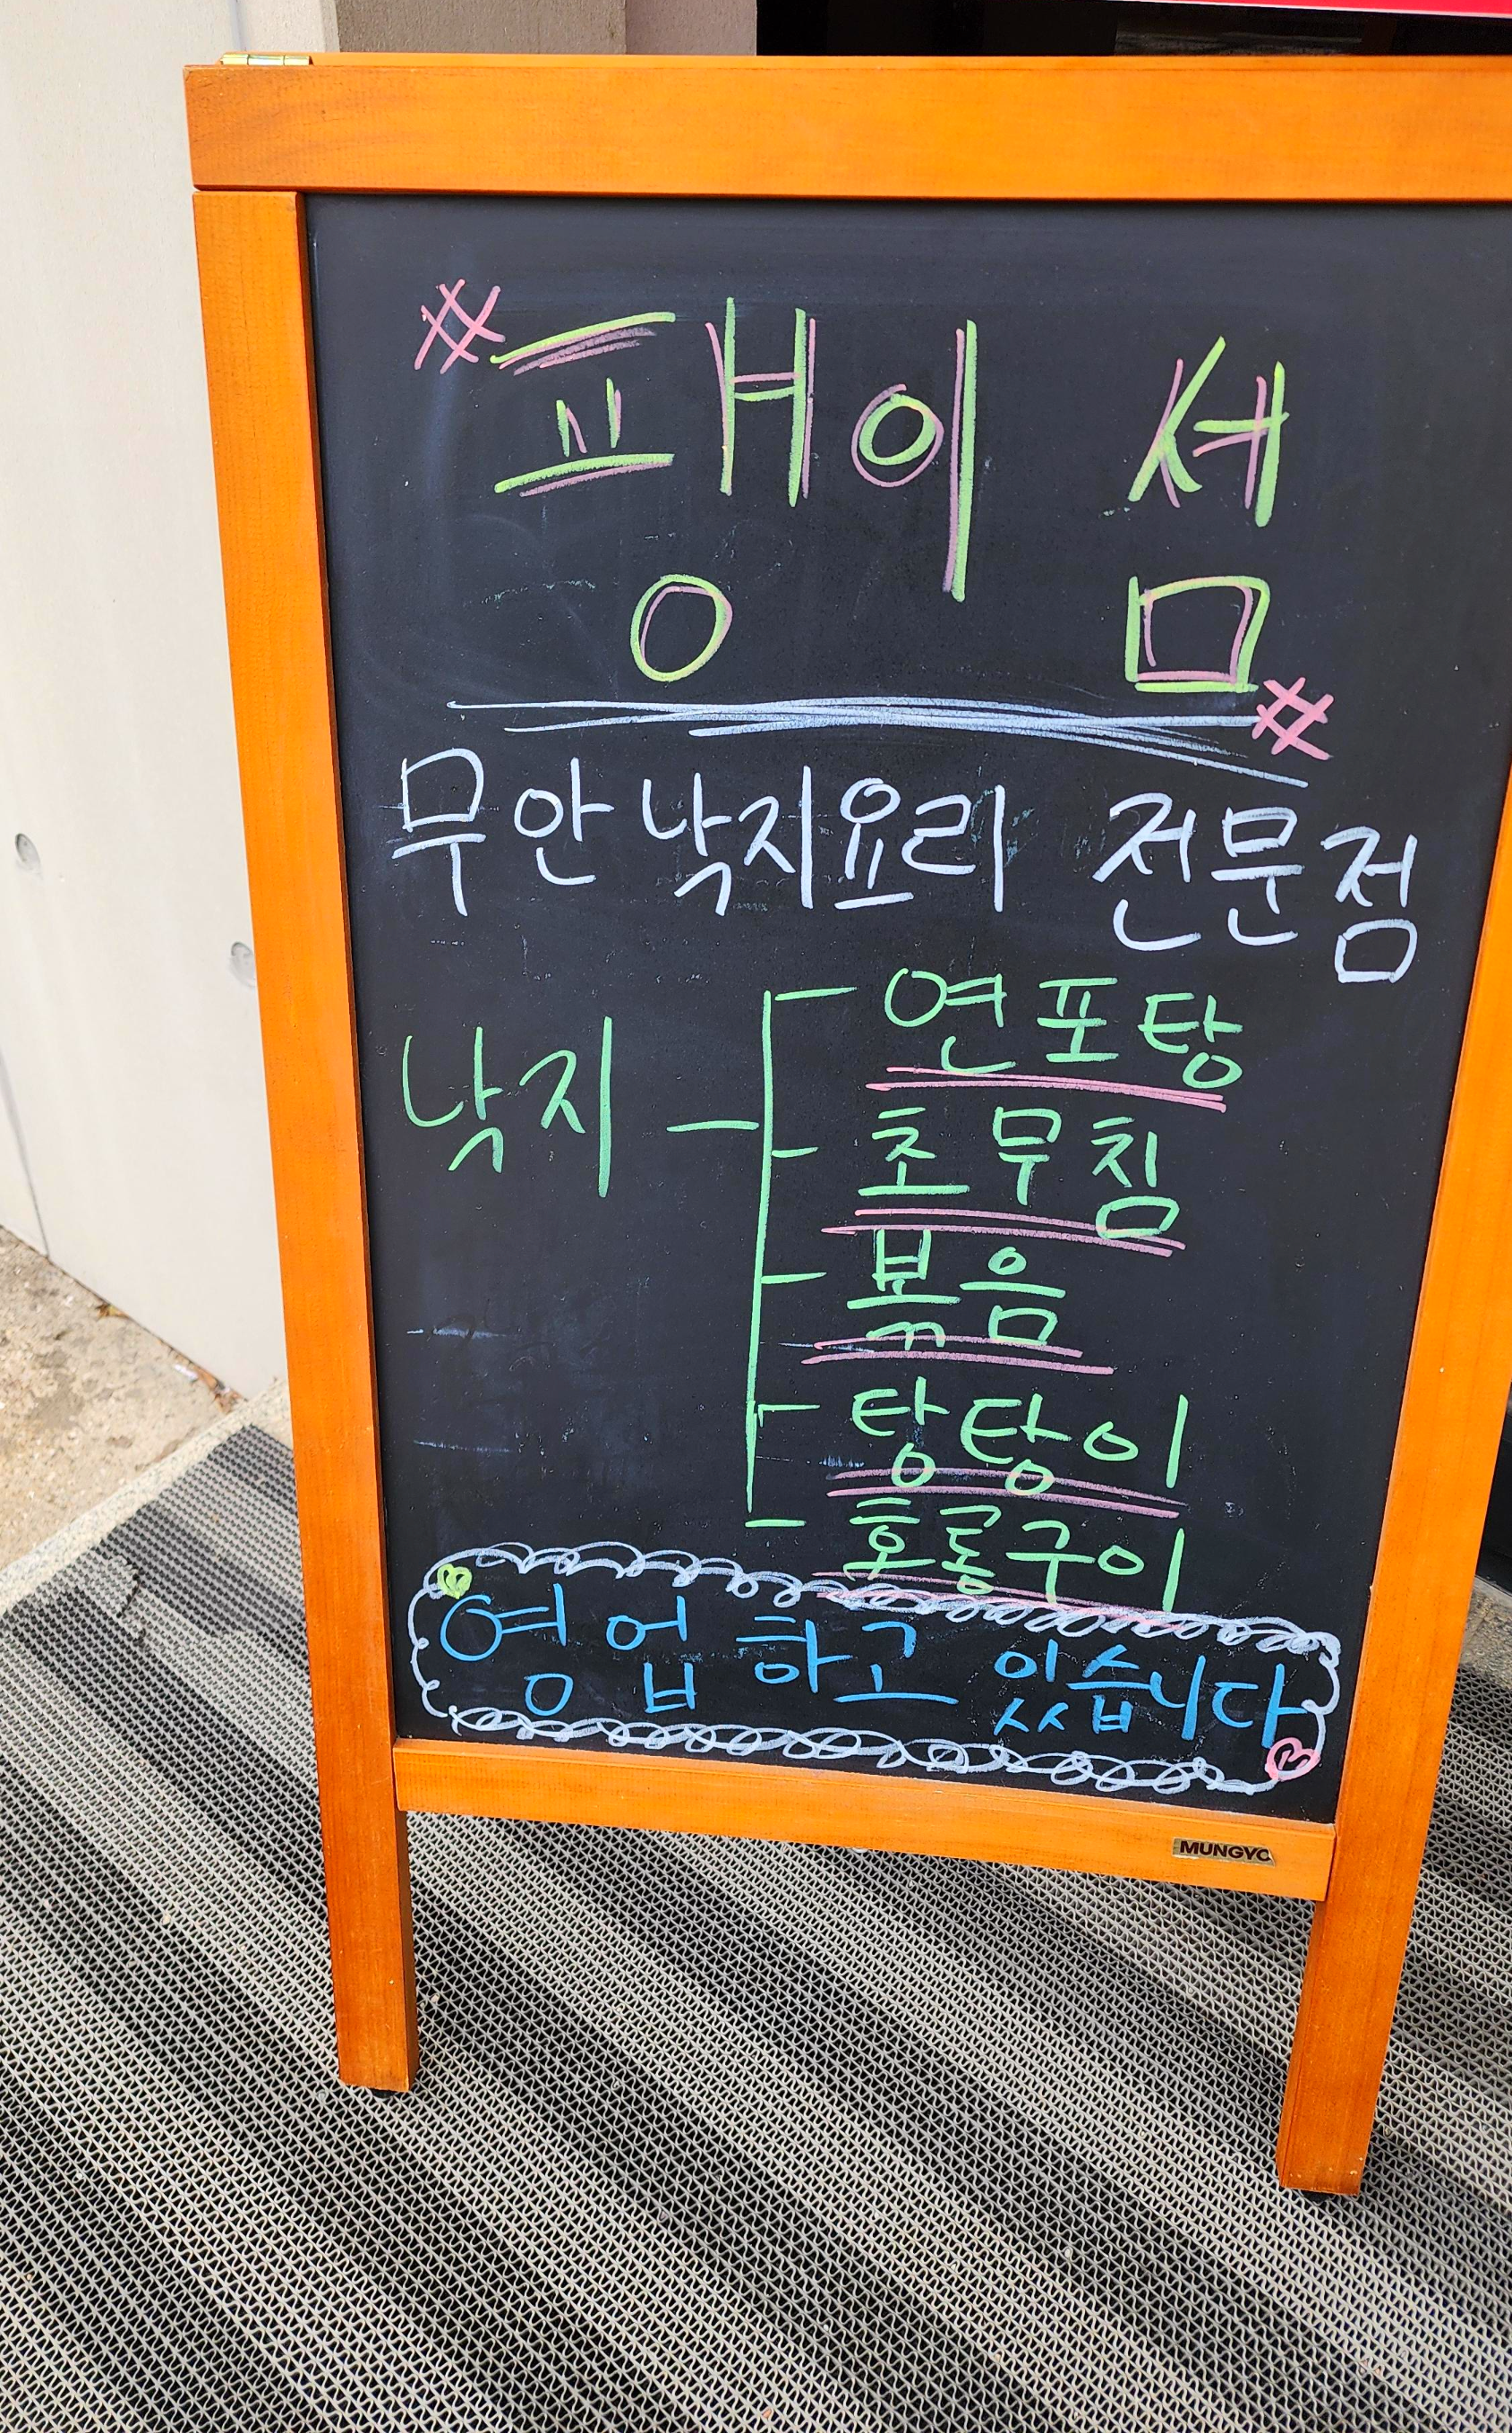 # 팽이 셤 #
무안 낙지요리 전문점
낙지
연포탕
초무침
볶음
탕탕이
호롱구이
영업 하고 있습니다
MUNGYO